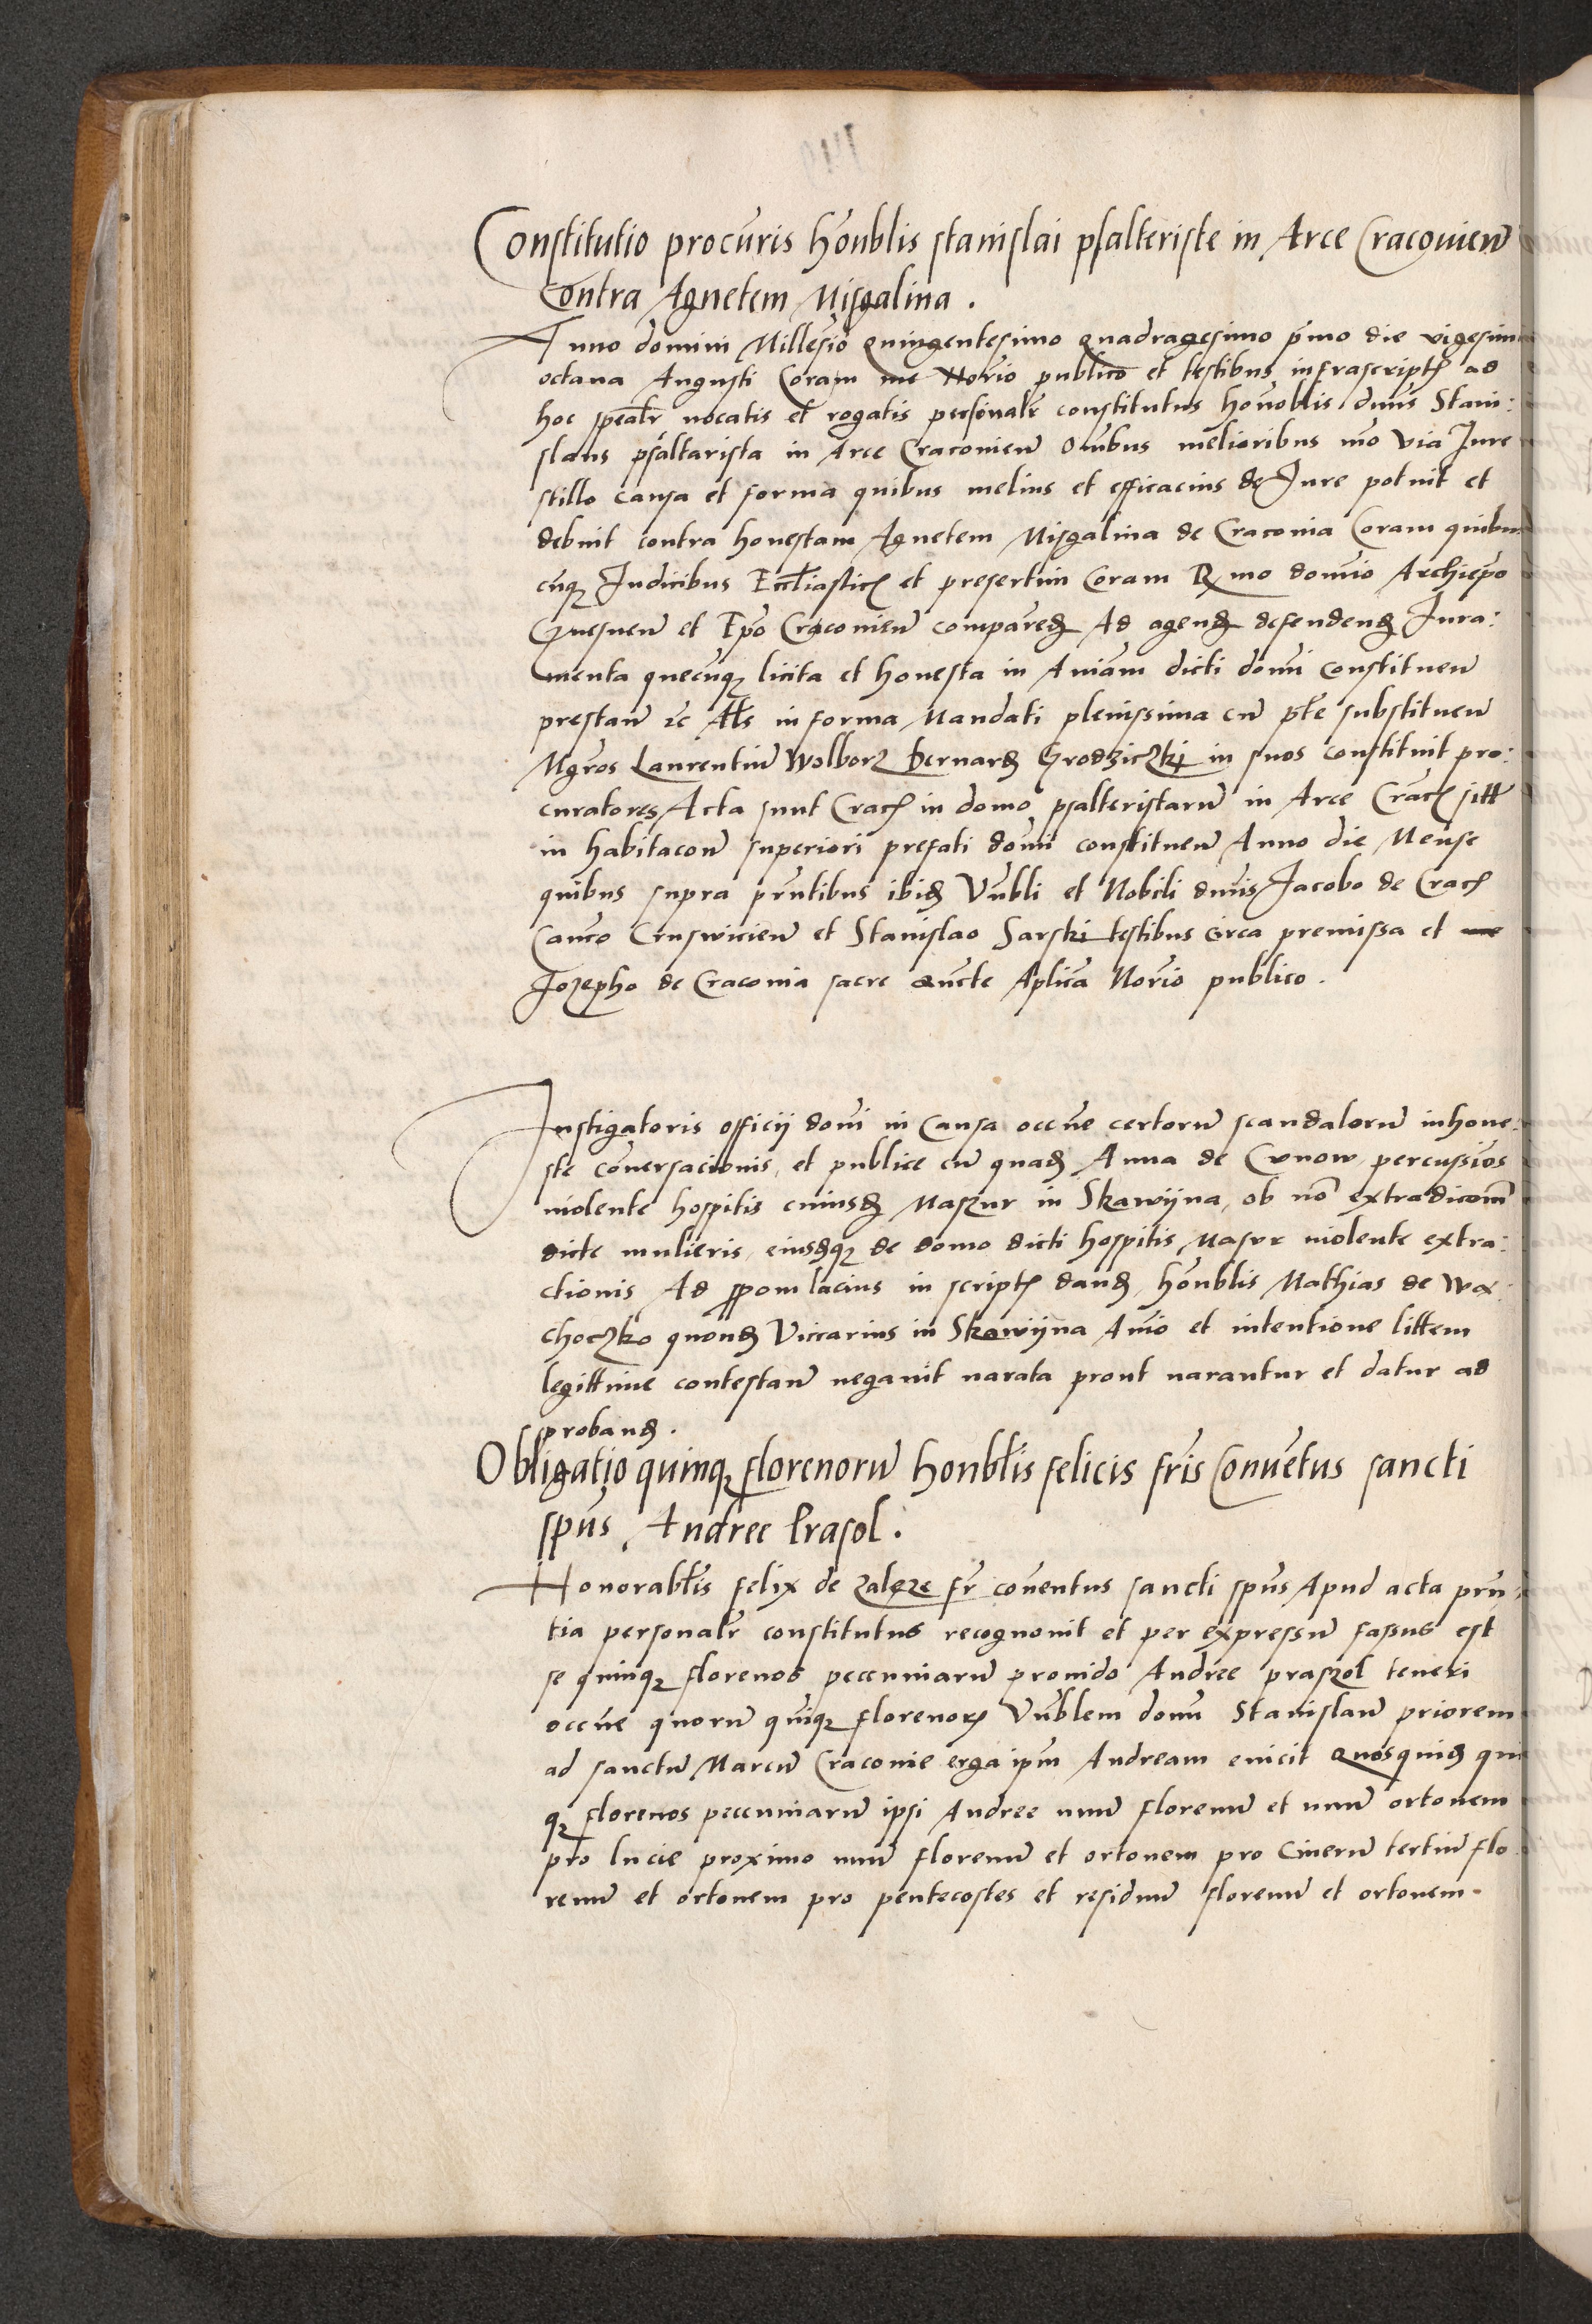 Constitutio procuris honblis stanislai psalteriste in Arce Cracouien
Contra Agnetem Misgalina .
Anno domini Millesio quingentesimo quadragesimo pmo die vigesim
octaua Augusti Coram me Norio publico et testibus infrascript ad
hoc spealr uocatis et rogatis personalr constitutus honoblis dnus Stani:
slaus psaltarista in Arce Cracouien Omibus melioribus mo via Jure
stillo causa et forma quibus melius et efficacius de Jure potuit et
debuit contra honestam Agnetem Misgalina de Cracouia Coram quibus
cunq Judicibus Ecclesiastic et presertim Coram Rmo domino Archiepo
Gnesnen et Epo Cracouien comparend Ad agend defendend Jura:
menta quecunq licita et honesta in Aniam dicti domi constituen
prestan etc Als in forma Mandati plenissima cu pte substituen
Mgros Laurentiu Wolborz Bernard Grodziczki in suos constituit pro:
curatores Acta sunt Crac in domo psalteristaru in Arce Crac sitt
in habitacon superiori prefati domi constituen Anno die Mense
quibus supra pntibus ibid Vnbli et Nobili dnis Jacobo de Crac
Canco Cruswicien et Stanislao Sarski testibus circa premissa et me
Jozepho de Cracouia sacre aucte Aplica Norio publico .
Instigatoris officij domi in Causa occne certoru scandaloru inhone:
ste conuersacionis, et publice cu quad Anna de Cunow percussios
uiolente hospitis cuiusd Maszur in Skawijna, ob no extradicom
dicte mulieris, eiusdq de domo dicti hospitis Masur uiolente extra:
ctionis Ad rpom lacius in script dand, honblis Mathias de Wa
choczko quond Viccarius in Skawijna Anio et intentione littem
legittime contestan negauit narata prout narantur et datur ad
proband .
Obligatio quinq florenoru honblis felicis fris Conuetus sancti
spus Andree Prasol .
Honorablis felix de Zaleze fr couentus sancti spus Apud acta prn
tia personalr constitutus recognouit et per expressu fassus est
se quinq florenos pecuniaru prouido Andree praszol teneri
occne quoru quiq florenor Vnblem domi Stanislau priorem
ad sanctu Marcu Cracouie erga ipm Andream euicit Quosquid qui
q florenos pecuniaru ipsi Andree unu florenu et unu ortonem
pro lucie proximo unu florenu et ortonem pro Cineru tertiu flo
renu et ortonem pro pentecostes et residuu florenu et ortonem